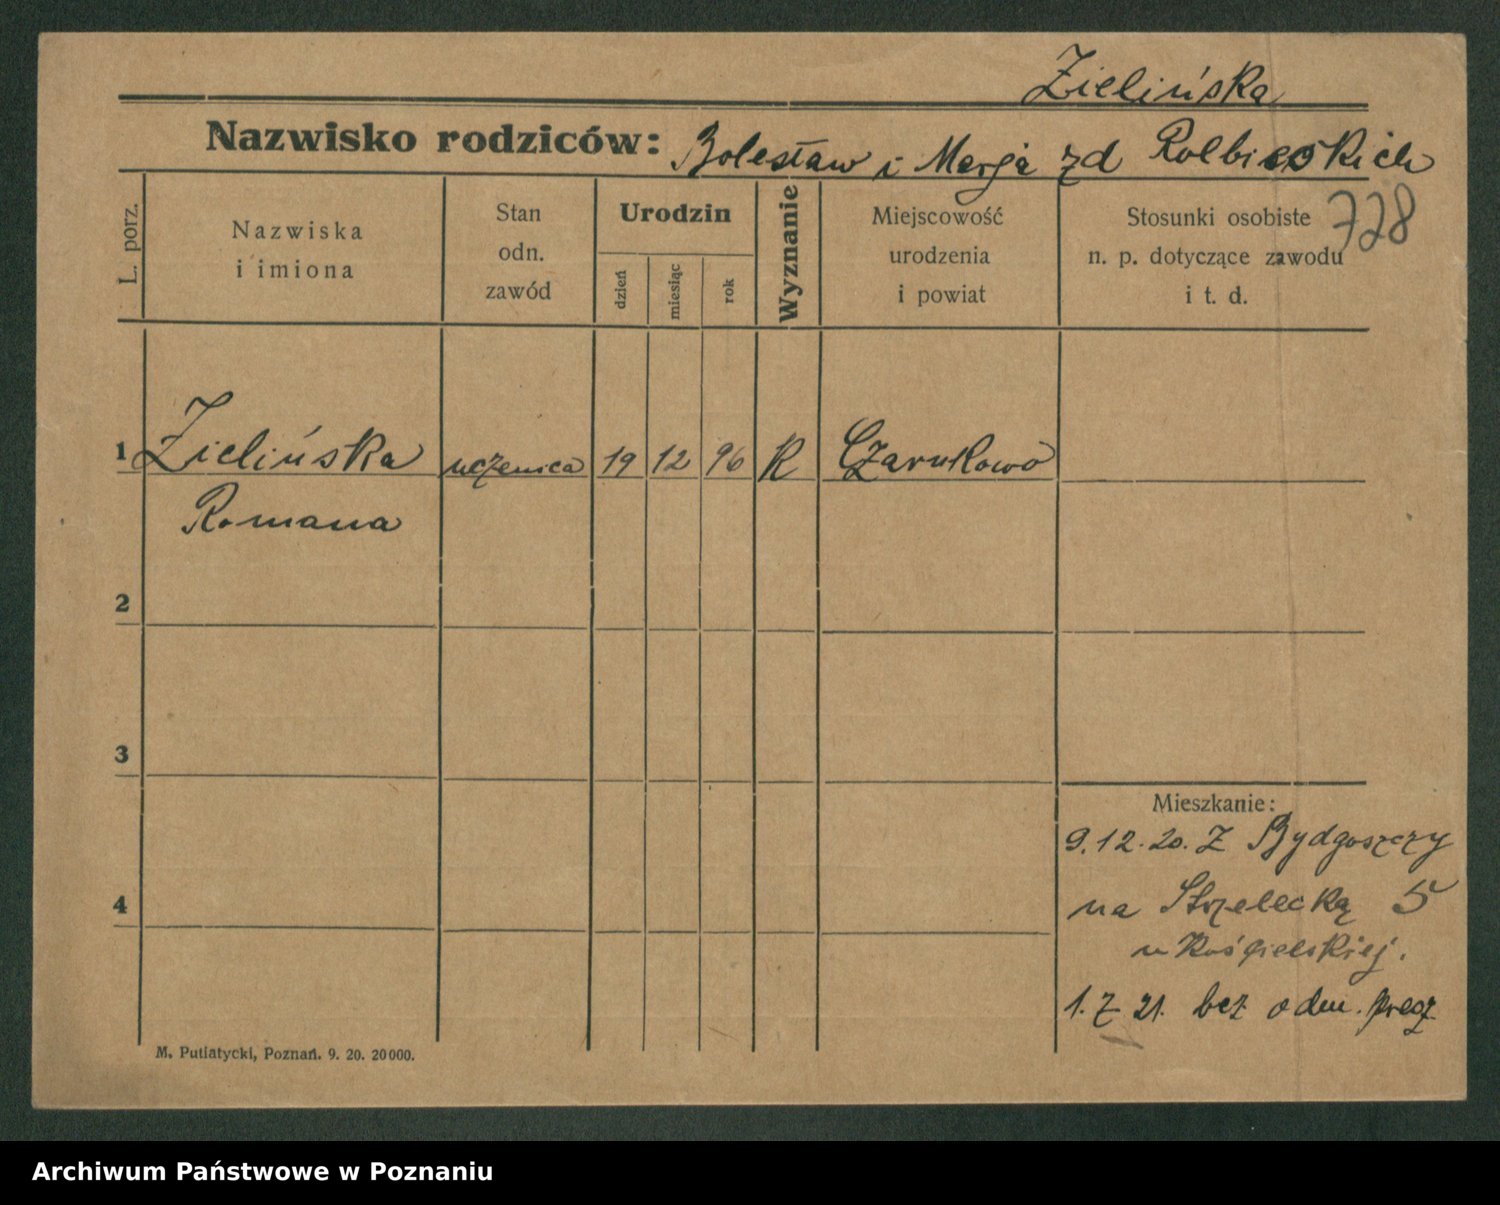 Zielińska
Nazwisko rodziców: Bolesław i Marja zd Rolbieskich
728
L. porz.
Nazwiska
i imiona
Stan
odn.
zawód
Urodzin
dzień
miesiąc
rok
Wyznanie
Miejscowość
urodzenia
i powiat
Stosunki osobiste
n. p. dotyczące zawodu
i t. d.
1 Zielińska uczenica 19 12 96 K Czarnkowo
Romana
2
3
Mieszkanie:
9.12.20. Z Bydgoszczy
4
na Strzelecką 5
u Kościelskiej.
1. 7 21. bez odm. precz
M. Putiatycki, Poznań. 9. 20. 20000.
Archiwum Państwowe w Poznaniu